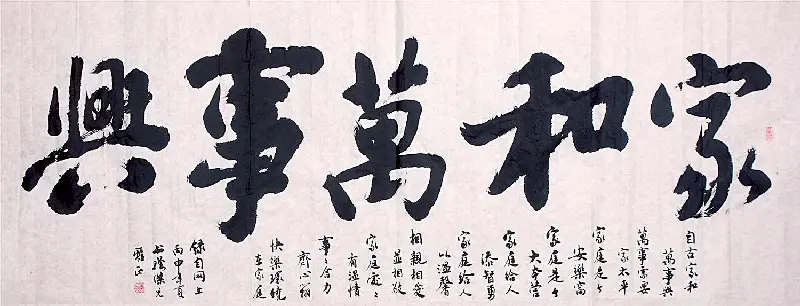 家和萬事興
自古家和
萬事興
萬事需要
家太平
家庭是个
安樂窩
家庭是个
大本營
家庭給人
添智勇
家庭給人
以溫馨
相親相愛
並相敬
家庭處々
有溫情
事々合力
齊心
快樂源
在家庭
錄自网上
丙申年夏
正